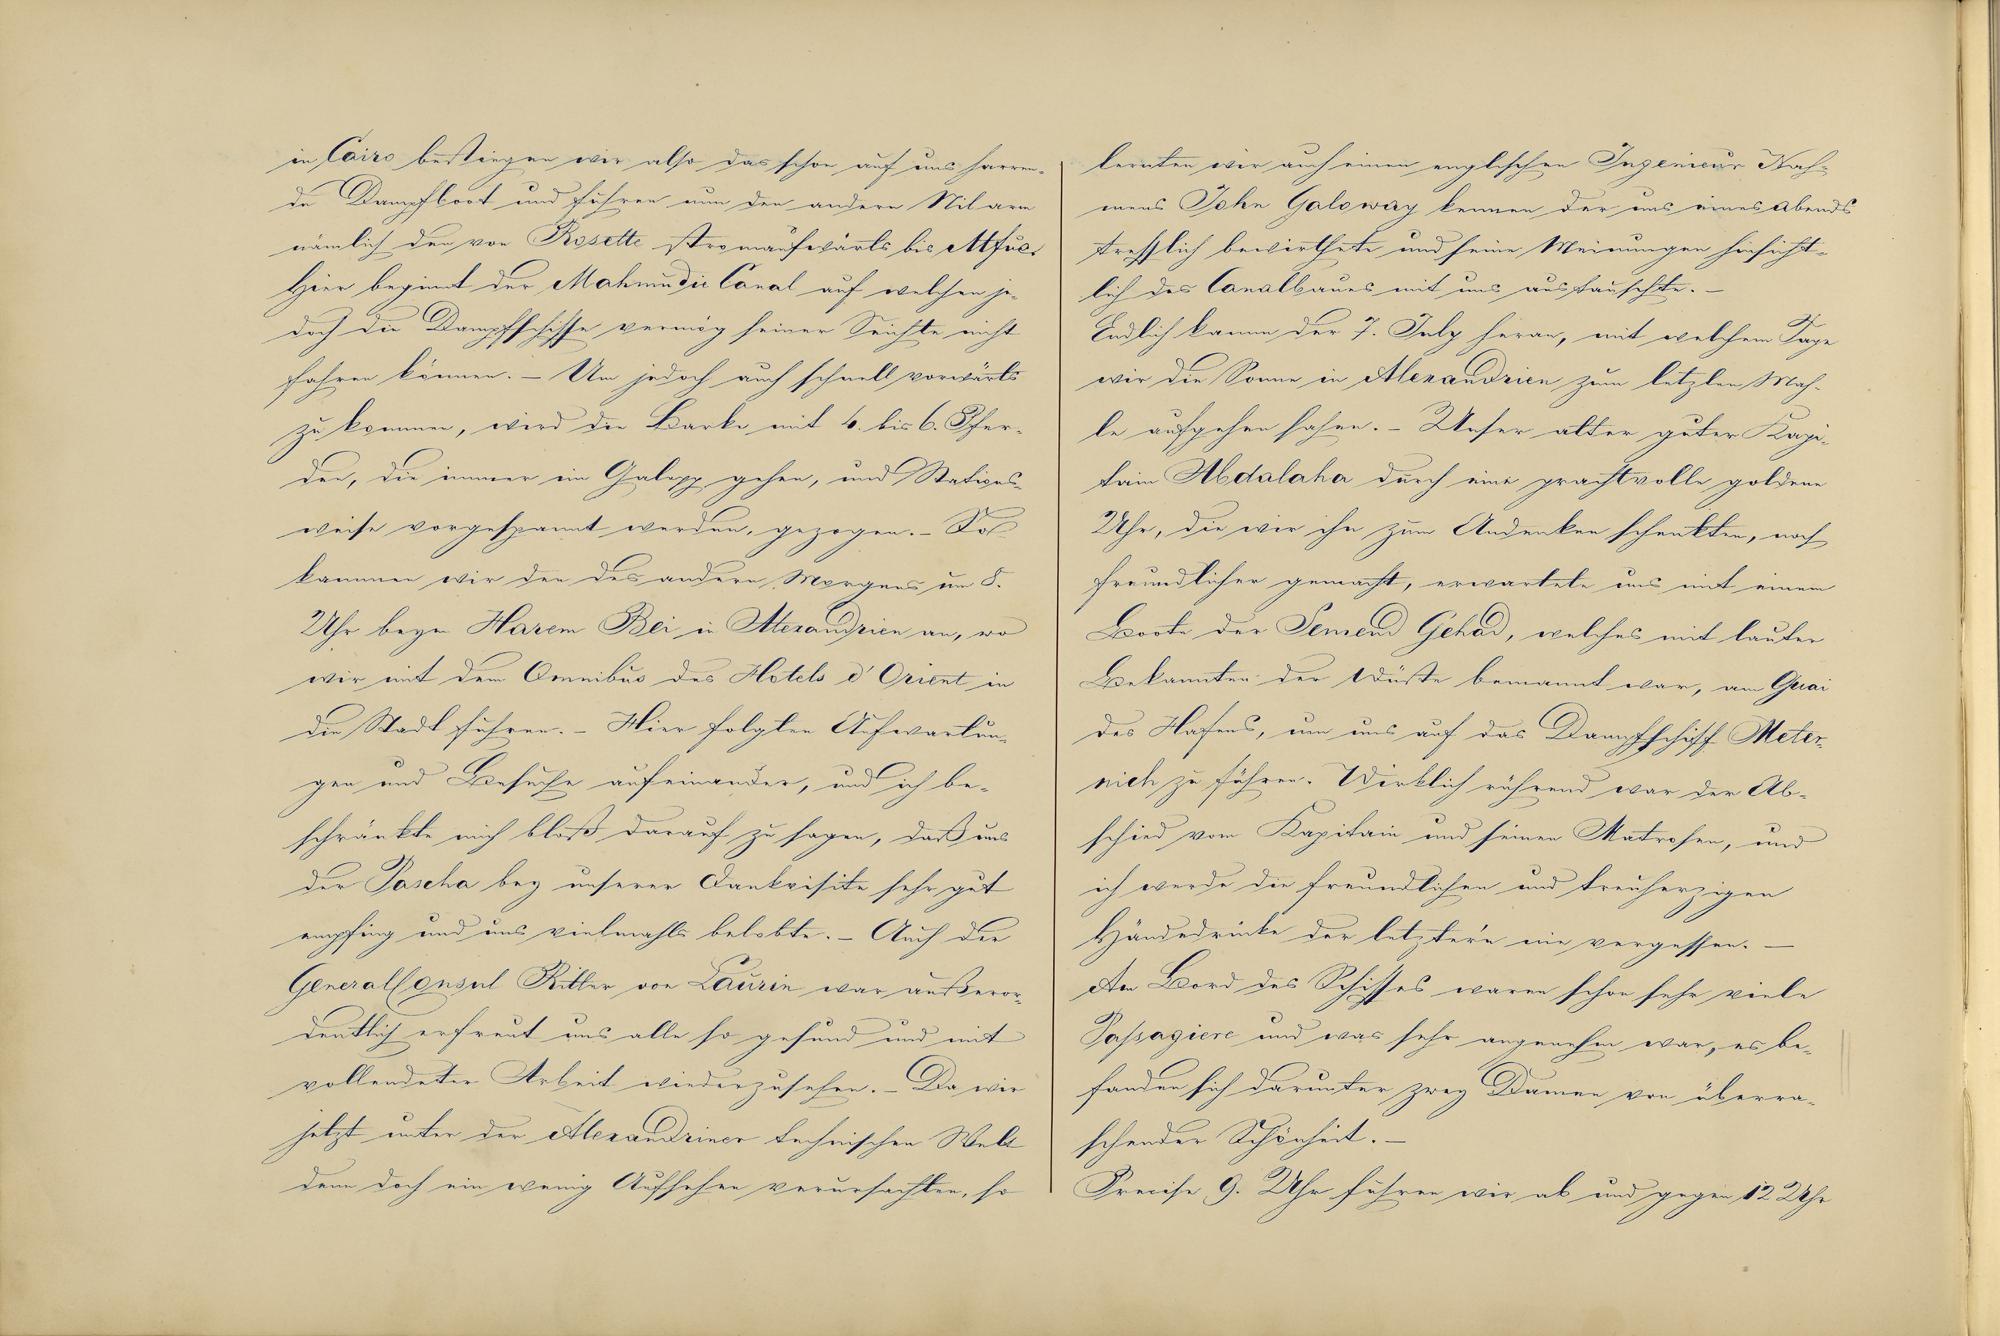 in Cairo bestiegen wir also das schon auf uns harren-
de Dampfboot und fuhren nun den andern Nil arm
nämlich den von Rosette stromaufwärts bis Atfuc.
Hier beginnt der Mahmudie Canal auf welchen je-
doch die Dampfschiffe vermög seiner Seichte nicht
fahren können. – Um jedoch auch schnell vorwärts
zu kommen, wird die Barke mit 4. bis 6. Pfer-
den, die immer im Galopp gehen, und Stations-
weise vorgespannt werden, gezogen. – So
kammen wir den des andern Morgens um 8.
Uhr beym Harem Bei in Alexandrien an, wo
wir mit dem Omnibus des Hotels d'Orient in
die Stadt fuhren. – Hier folgten Aufwartun-
gen und Besuche aufeinander, und ich be-
schränkte mich bloß darauf zu sagen, daß uns
der Pascha bey unserer Dankvisite sehr gut
empfing und uns vielmahls belobte. – Auch der
GeneralConsul Ritter von Laurin war außeror-
dentlich erfreut uns alle so gesund und mit
vollendeter Arbeit wiederzusehen. – Da wir
jetzt unter der Alexandriner technischen Welt
denn doch ein wenig Aufsehen verursachten, so
lernten wir auch einen englischen Ingenieur Nah-
mens John Galoway kennen der uns eines abends
trefflich bewirthete und seine Meinungen hinsicht-
lich des Canalbaues mit uns austauschte. –
Endlich kamm der 7. July heran, mit welchem Tage
wir die Sonne in Alexandrien zum letzten Mah-
le aufgehen sahen. – Unser alter guter Kapi-
tain Abdalaha durch eine prachtvolle goldene
Uhr, die wir ihn zum Andenken schenkten, noch
freundlicher gemacht, erwartete uns mit einem
Boote der Semend Gehad, welches mit lauter
Bekannten der Wüste bemannt war, am Quai
des Hafens, um uns auf das Dampfschiff Meter-
nich zu führen. Wirklich rührend war der Ab-
schied vom Kapitain und seinen Matrosen, und
ich werde die freundlichen und treuherzigen
Händedrücke der letztern nie vergessen. –
Am Bord des Schiffes waren schon sehr viele
Passagiere und was sehr angenehm war, es be-
fanden sich darunter zwey Damen von überra-
schender Schönheit. –
Precise 9. Uhr fuhren wir ab und gegen 12 Uhr